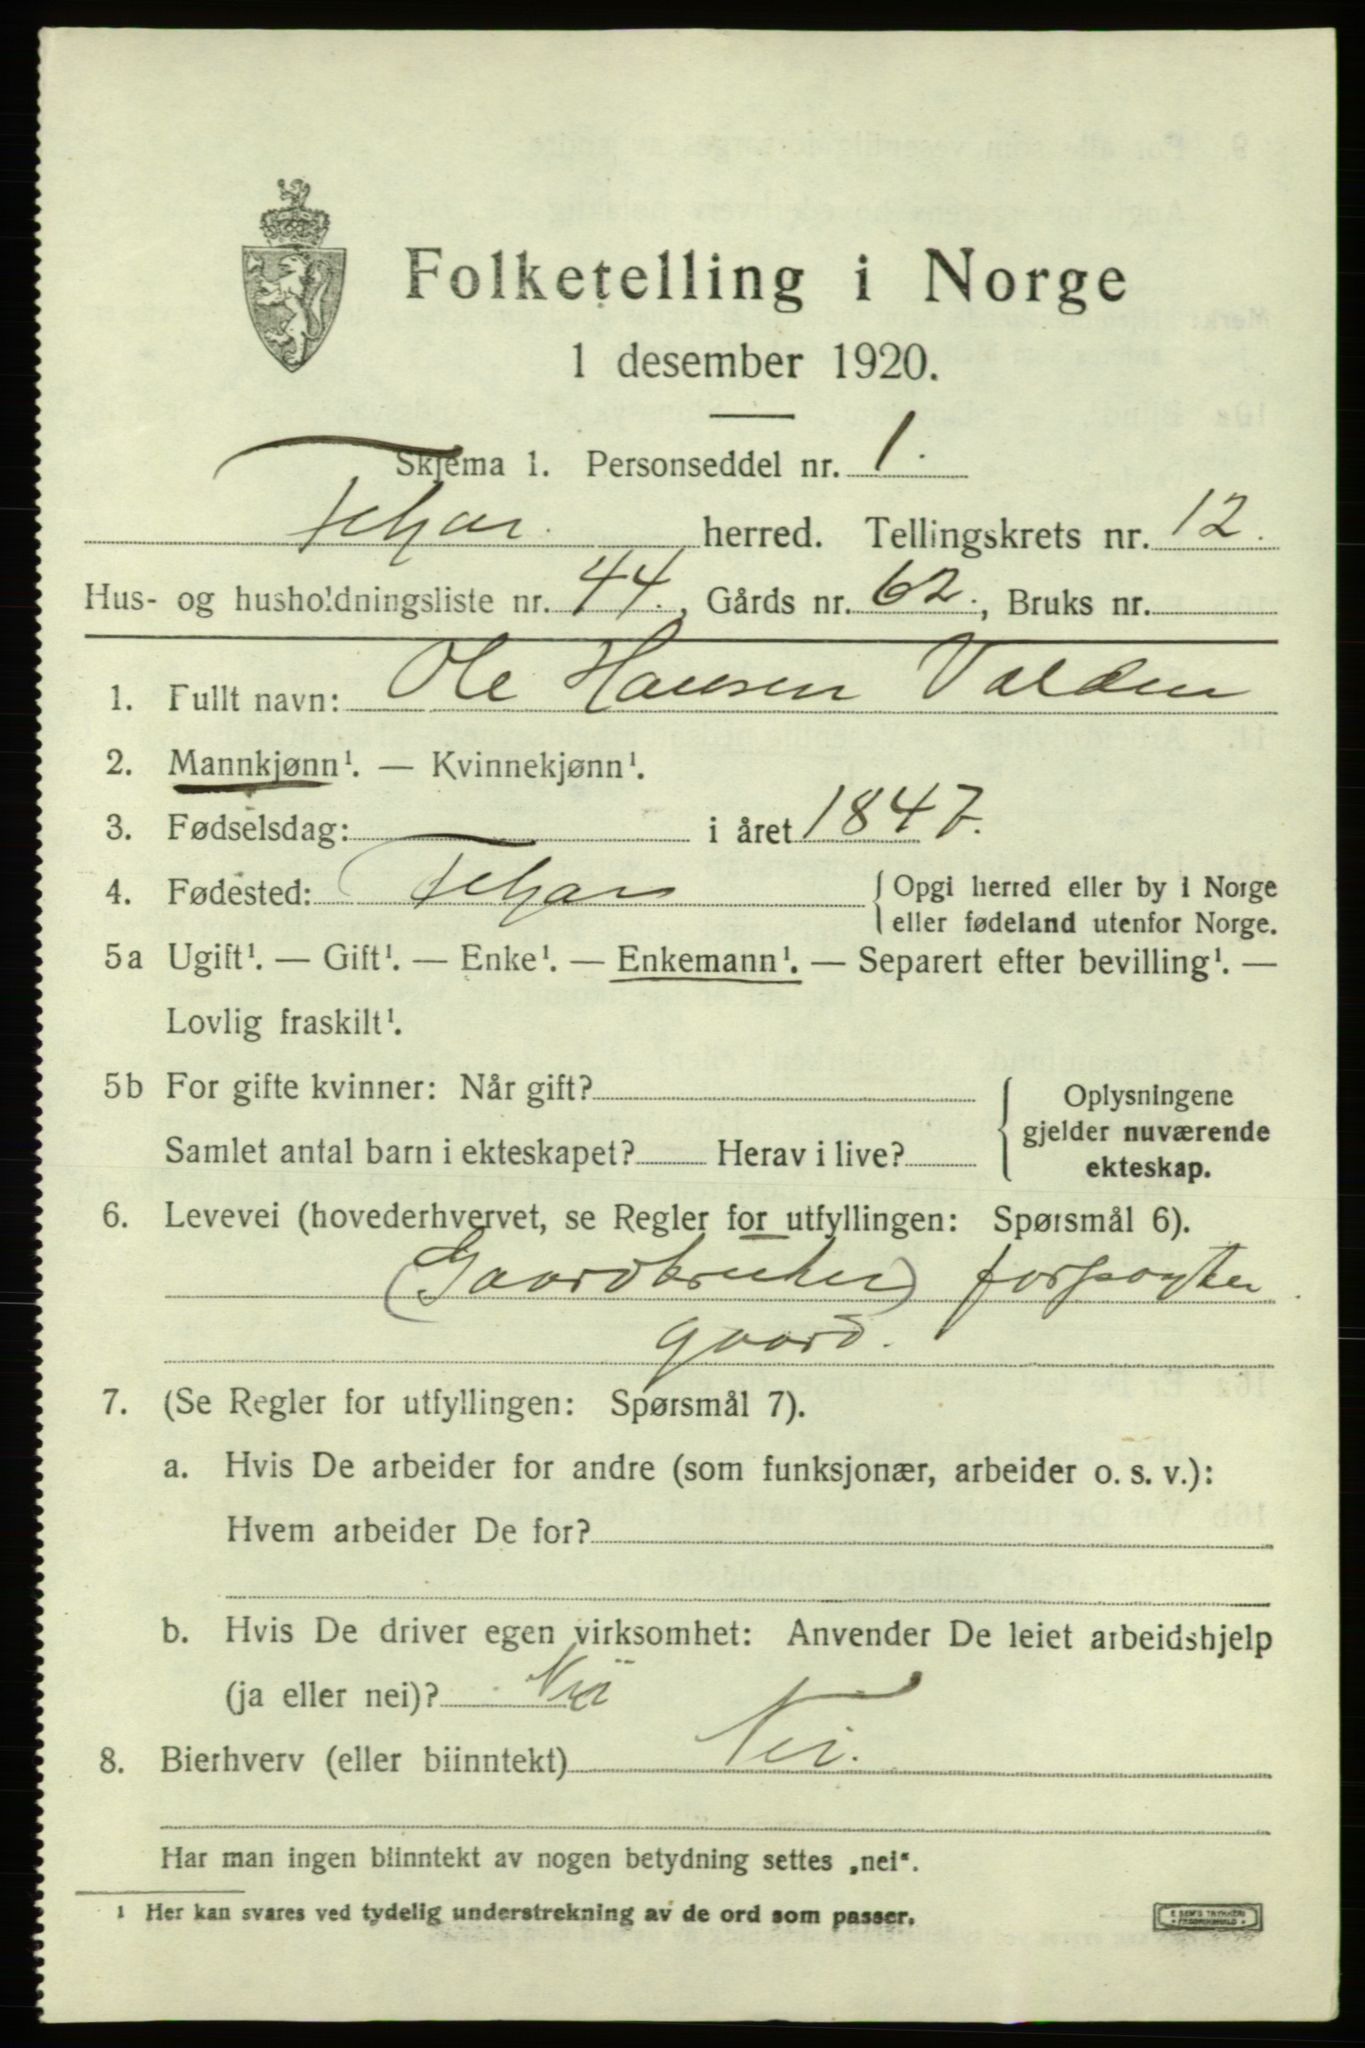 Folketelling i Norge
1 desember 1920.
Skjema 1. Personseddel nr. 1.
herred. Tellingskrets nr. 12.
Hus- og husholdningsliste nr. 44., Gårds nr. 62., Bruks nr.
1. Fullt navn: Ole Hansen Valden
2. Mannkjønn¹. — Kvinnekjønn¹.
3. Fødselsdag: i året 1847.
4. Fødested: {Opgi herred eller by i Norge
eller fødeland utenfor Norge.
5a Ugift¹. — Gift¹. — Enke¹. — Enkemann¹. — Separert efter bevilling¹. —
Lovlig fraskilt¹.
5b For gifte kvinner: Når gift?
Samlet antal barn i ekteskapet? Herav i live?
{Oplysningene
gjelder nuværende
ekteskap.
6. Levevei (hovederhvervet, se Regler for utfyllingen: Spørsmål 6).
(Gaardbruker) forpagter
gaard.
7. (Se Regler for utfyllingen: Spørsmål 7).
a. Hvis De arbeider for andre (som funksjonær, arbeider o. s. v.):
Hvem arbeider De for?
b. Hvis De driver egen virksomhet: Anvender De leiet arbeidshjelp
(ja eller nei)? Nei
8. Bierhverv (eller biinntekt) Nei.
Har man ingen biinntekt av nogen betydning settes „nei“.
1 Her kan svares ved tydelig understrekning av de ord som passer.